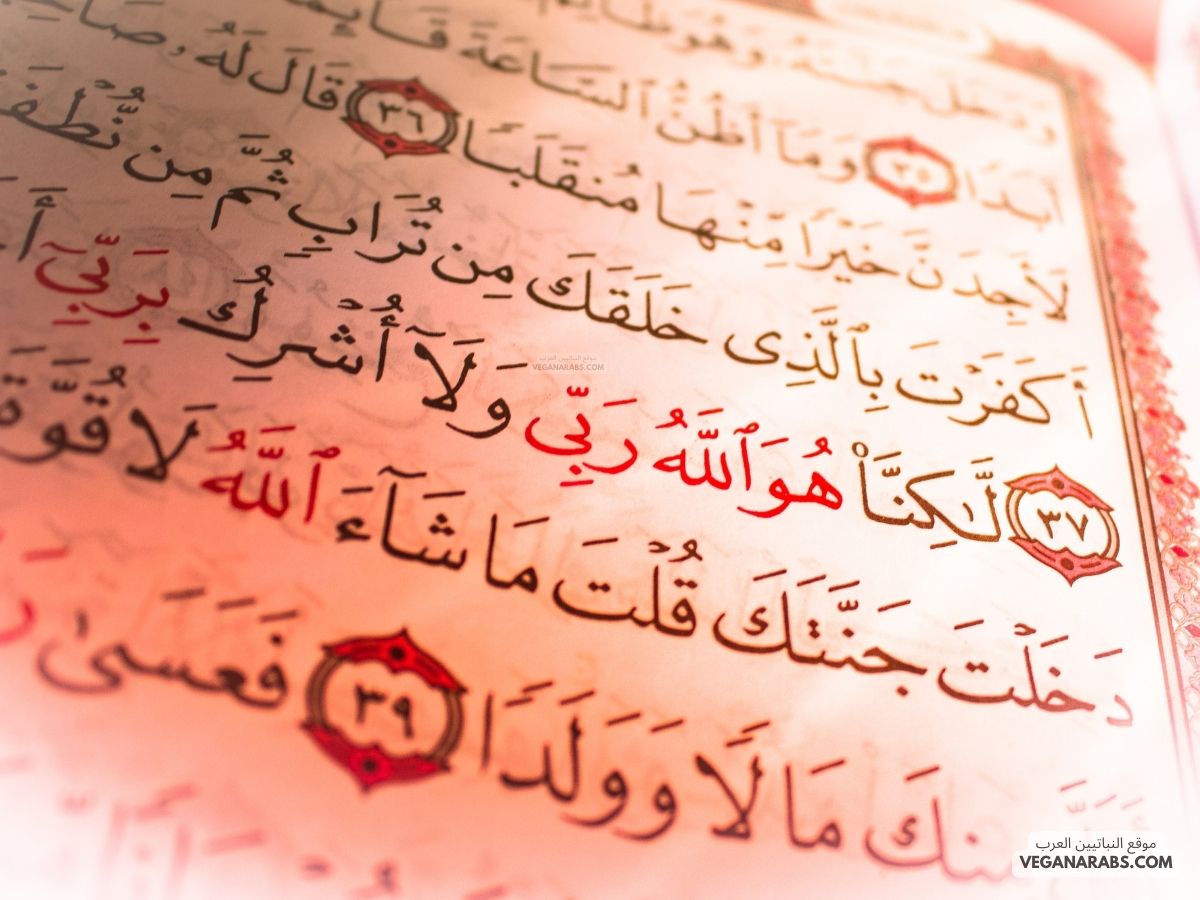 ودخل جنته ۥ وهو ظالم
أَبَدًا ٣٥ وَمَآ أَظُنُّ ٱلسَّاعَةَ قَآئِمَ
لَأَجِدَنَّ خَيْرًا مِّنْهَا مُنقَلَبًا ٣٦ قَالَ لَهُۥ صَاحِ
أَكَفَرْتَ بِٱلَّذِى خَلَقَكَ مِن تُرَابٍ ثُمَّ مِن نُّطْفَ
٣٧ لَّٰكِنَّا۠ هُوَ ٱللَّهُ رَبِّى وَلَآ أُشْرِكُ بِرَبِّىٓ أَ
دَخَلْتَ جَنَّتَكَ قُلْتَ مَا شَآءَ ٱللَّهُ لَا قُوَّةَ
مِنكَ مَالًا وَوَلَدًا ٣٩ فَعَسَىٰ رَ
موقع النباتيين العرب
VEGANARABS.COM
موقع النباتيين العرب
VEGANARABS.COM